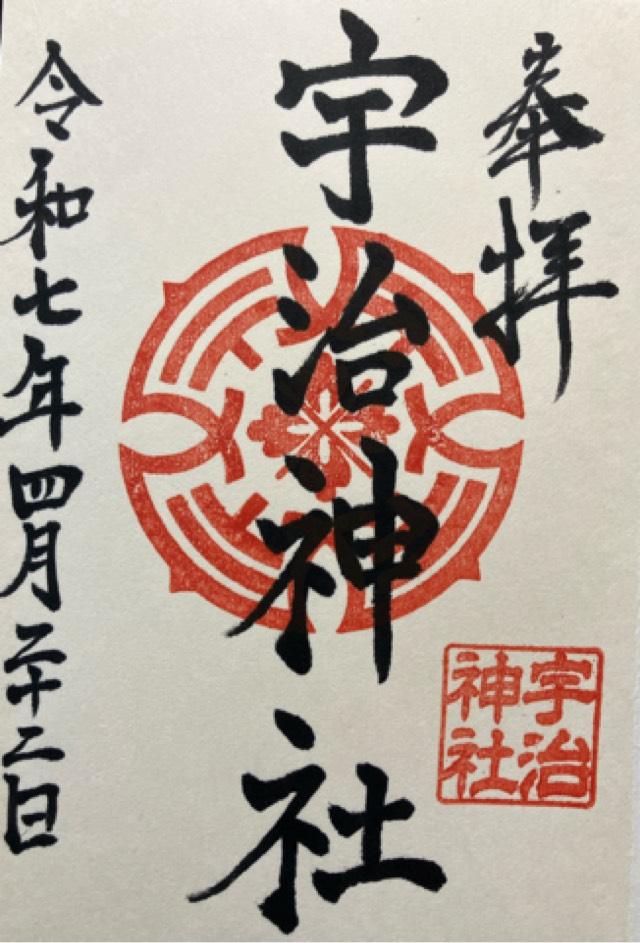 奉拝
宇治神社
宇治
神社
令和七年四月二十二日